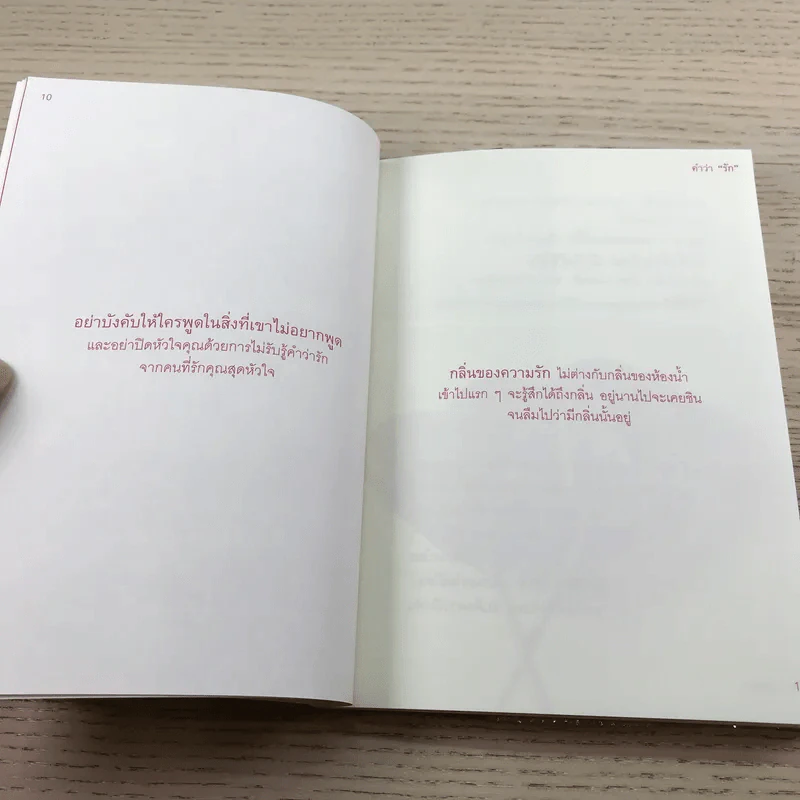 10
อย่าบังคับให้ใครพูดในสิ่งที่เขาไม่อยากพูด
และอย่าปิดหัวใจคุณด้วยการไม่รับรู้คำว่ารัก
จากคนที่รักคุณสุดหัวใจ
คำว่า “รัก”
กลิ่นของความรัก ไม่ต่างกับกลิ่นของห้องน้ำ
เข้าไปแรก ๆ จะรู้สึกได้ถึงกลิ่น อยู่นานไปจะเคยชิน
จนลืมไปว่ามีกลิ่นนั้นอยู่
1